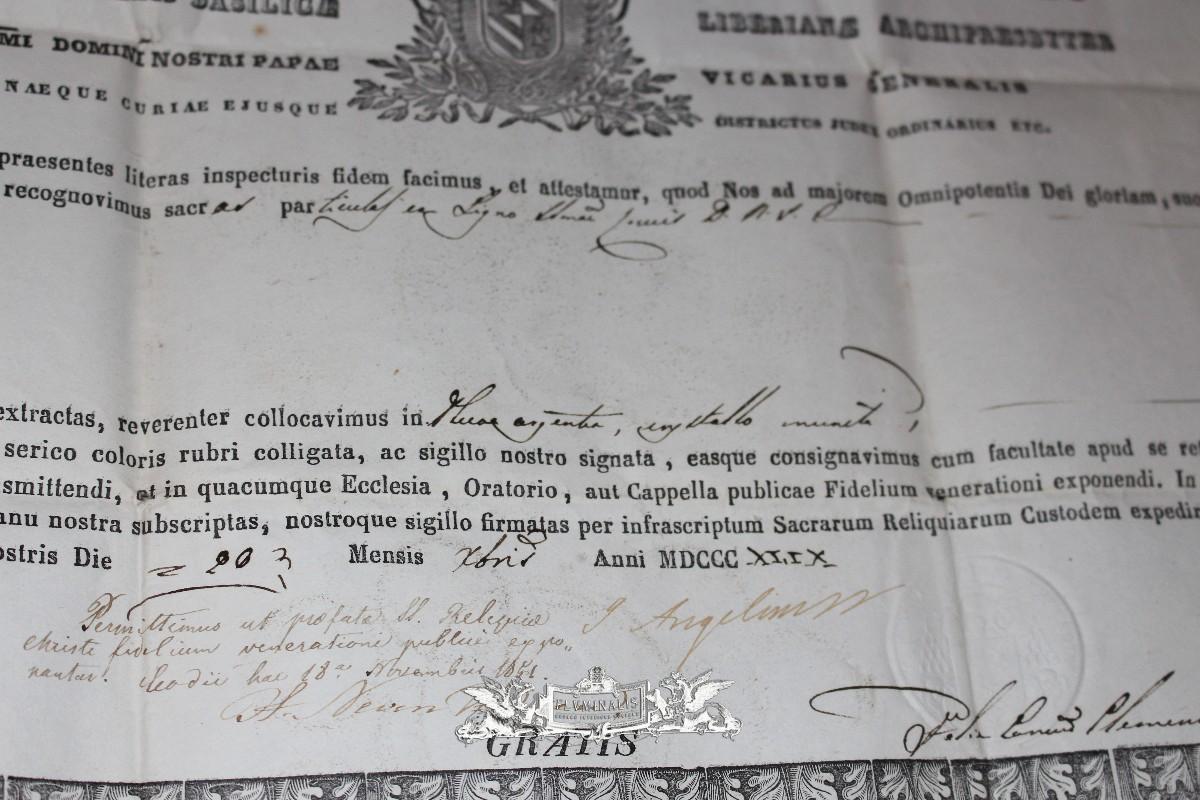 BASILICÆ LIBERIANÆ ARCHIPRESBYTER
MI DOMINI NOSTRI PAPAE VICARIUS GENERALIS
NAEQUE CURIAE EJUSQUE DISTRICTUS JUDEX ORDINARIUS ETC.
praesentes literas inspecturis fidem facimus, et attestamur, quod Nos ad majorem Omnipotentis Dei gloriam, suo
recognovimus sacras particulas ex Ligno SSmae Crucis D. N. J. C.
extractas, reverenter collocavimus in theca argentea, crystallo munita,
serico coloris rubri colligata, ac sigillo nostro signata, easque consignavimus cum facultate apud se ret
smittendi, et in quacumque Ecclesia, Oratorio, aut Cappella publicae Fidelium venerationi exponendi. In
anu nostra subscriptas, nostroque sigillo firmatas per infrascriptum Sacrarum Reliquiarum Custodem expedir
ostris Die 20 Mensis Xbris Anni MDCCC XLIX
Permittimus ut præfatæ SS. Reliquiæ
christi fidelium venerationi publicæ expo„
nantur. Leodii hac 18a Novembris 1851.
J Angelini
H. Neven
Felix Canus Clemen
PLVMINALIS
GRATIS